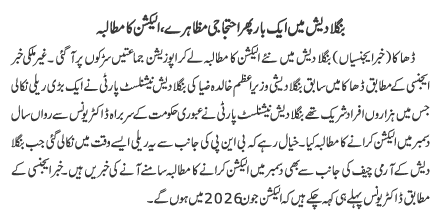 بنگلا دیش میں ایک بار پھر احتجاجی مظاہرے، الیکشن کا مطالبہ
ڈھاکا (خبر ایجنسیاں) بنگلا دیش میں نئے الیکشن کا مطالبہ لے کر اپوزیشن جماعتیں سڑکوں پر آ گئی۔ غیر ملکی خبر
ایجنسی کے مطابق ڈھاکا میں سابق بنگلا دیشی وزیر اعظم خالدہ ضیا کی بنگلا دیش نیشنلسٹ پارٹی نے ایک بڑی ریلی نکالی
جس میں ہزاروں افراد شریک تھے بنگلا دیش نیشنلسٹ پارٹی نے عبوری حکومت کے سربراہ ڈاکٹر یونس سے رواں سال
دسمبر میں الیکشن کرانے کا مطالبہ کیا۔ خیال رہے کہ بی این پی کی جانب سے یہ ریلی ایسے وقت میں نکالی گئی جب بنگلا
دیش کے آرمی چیف کی جانب سے بھی دسمبر میں الیکشن کرانے کا مطالبہ سامنے آنے کی خبریں ہیں۔ خبر ایجنسی کے
مطابق ڈاکٹر یونس پہلے ہی کہہ چکے ہیں کہ الیکشن جون 2026 میں ہوں گے۔